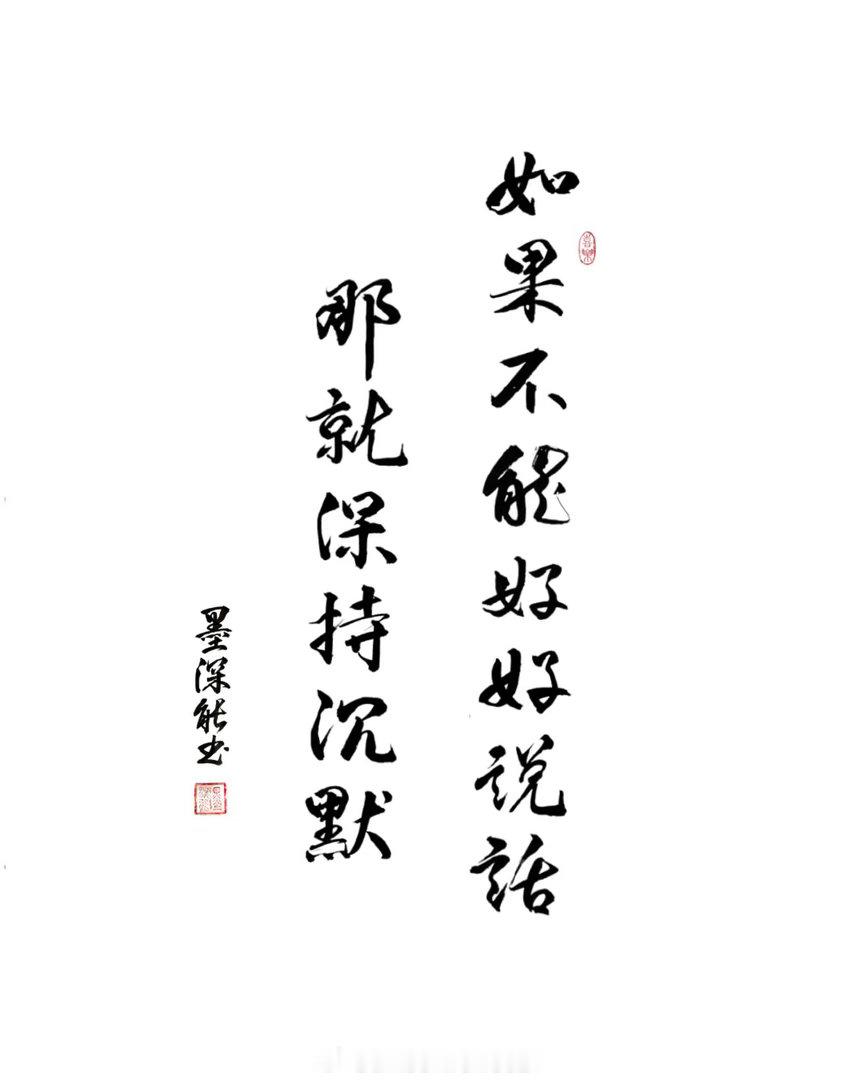 如果不能好好說話
那就保持沉默
墨深能书